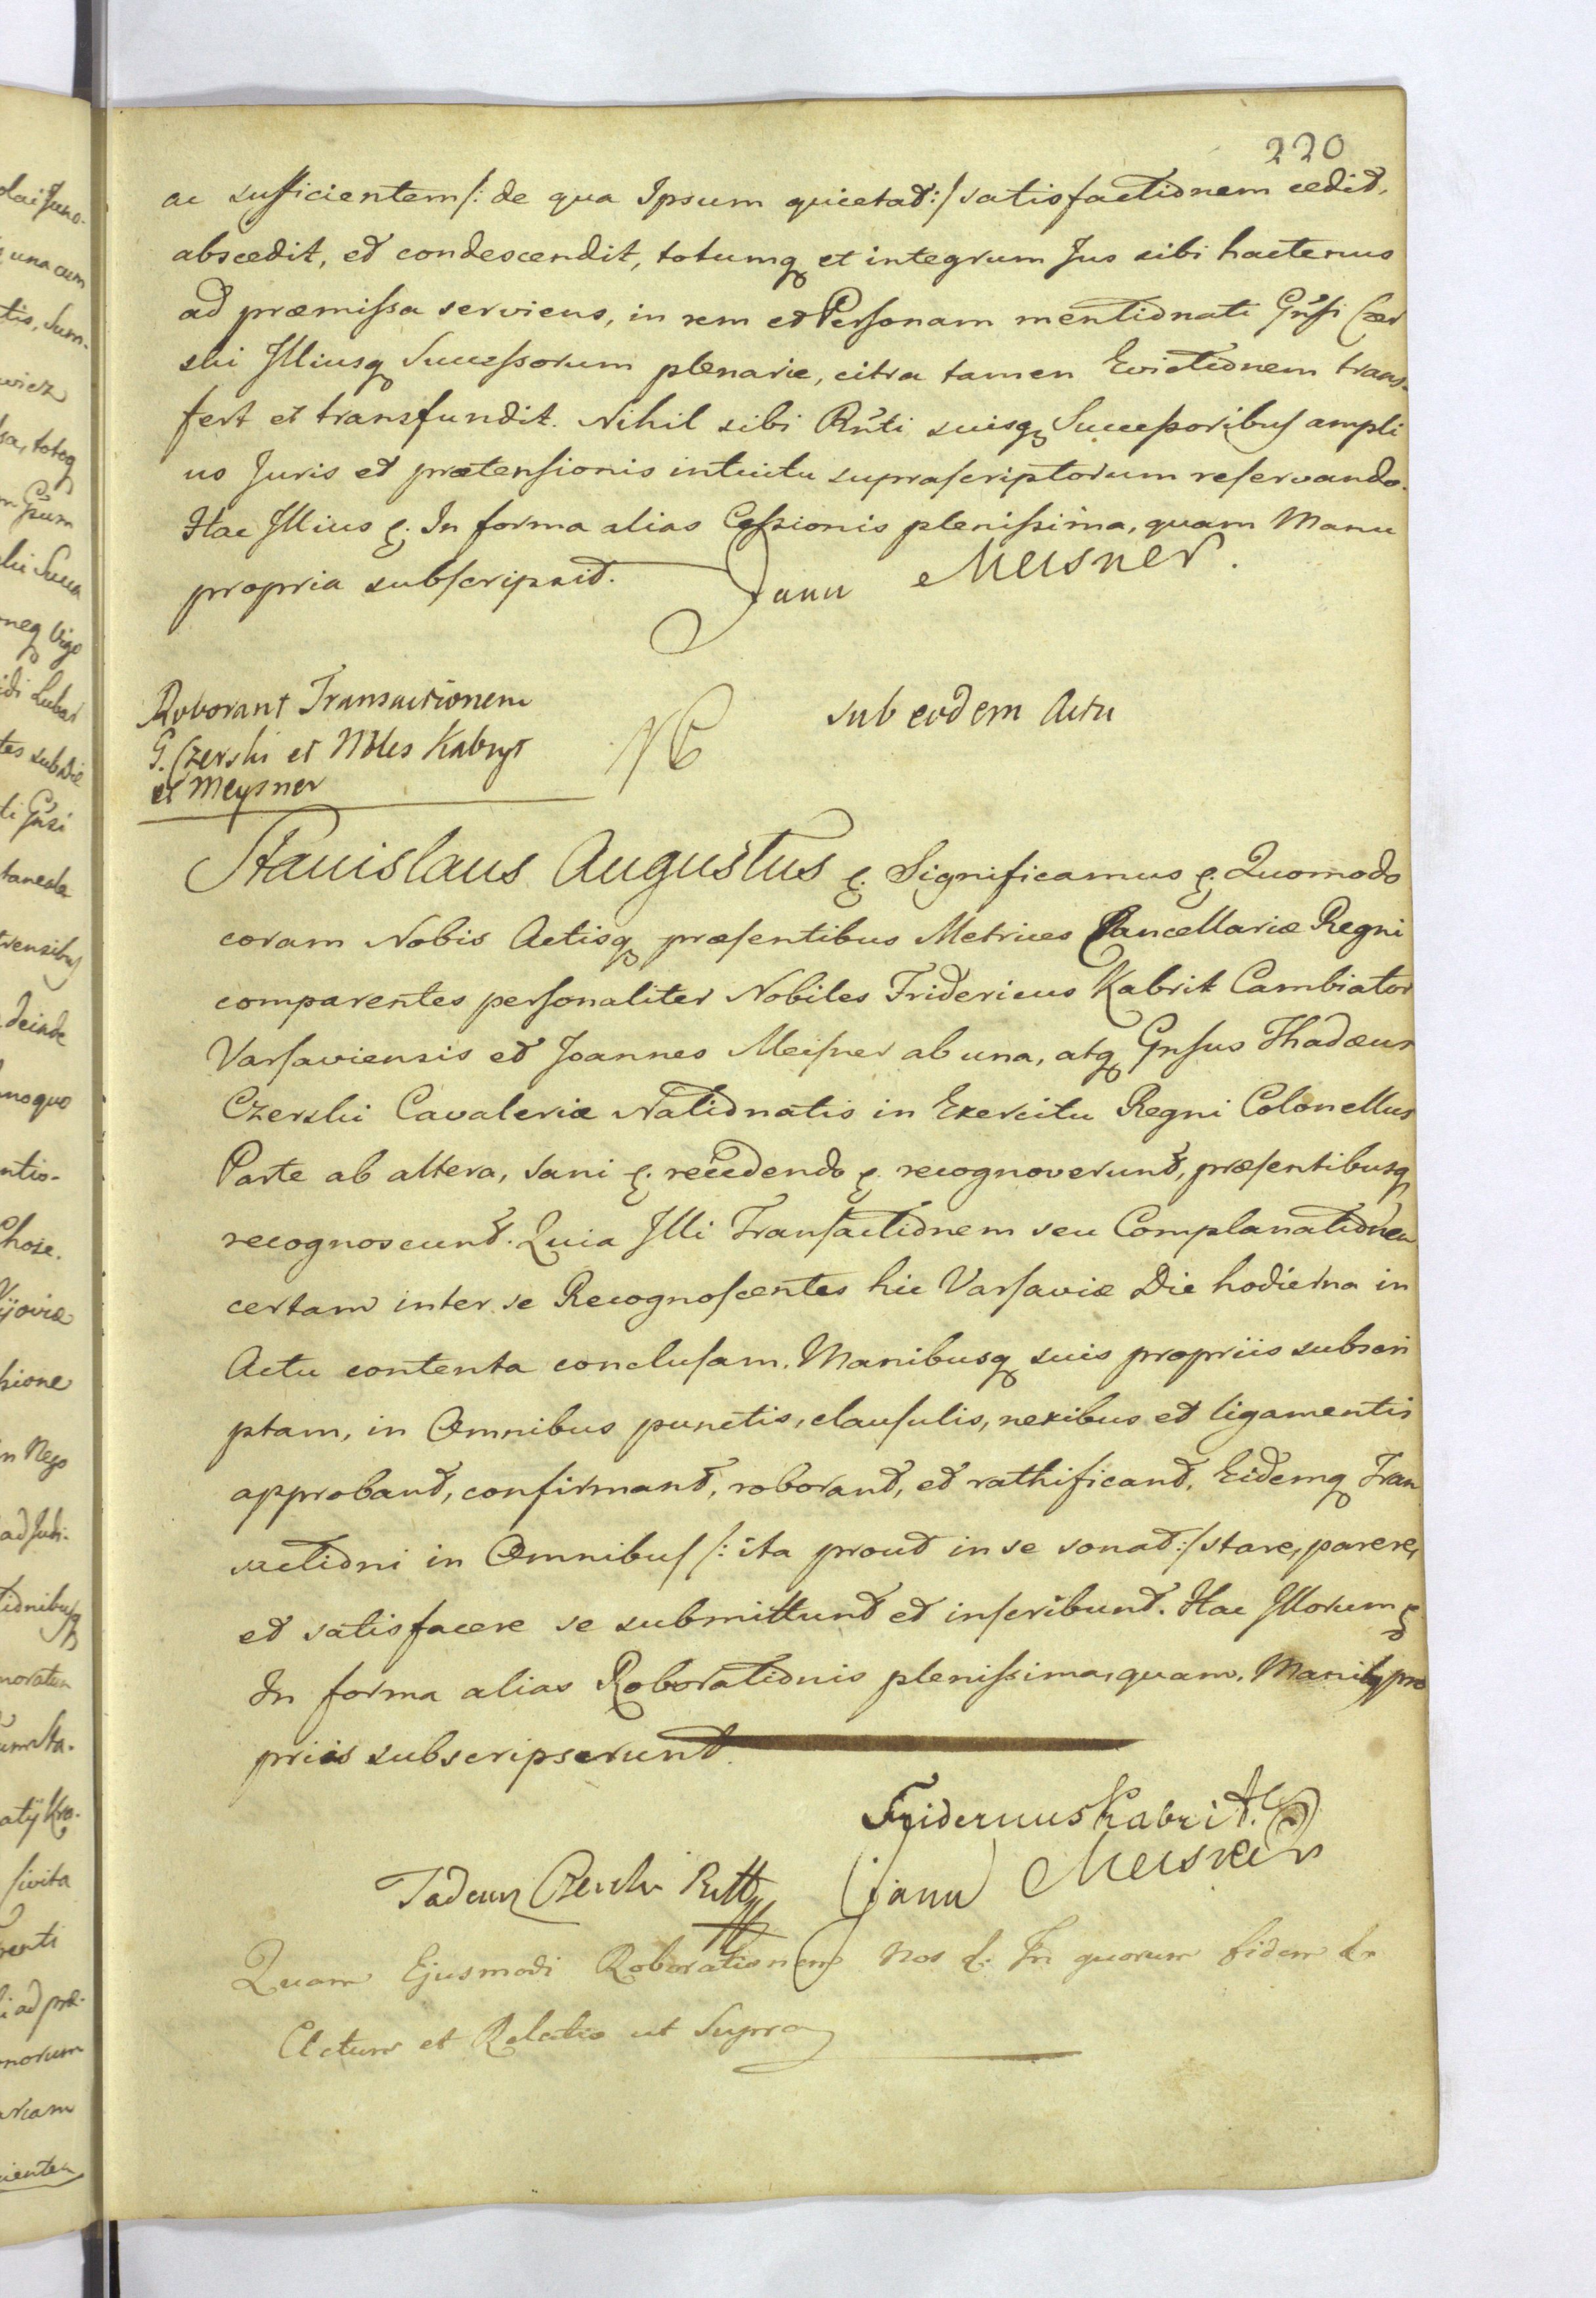 220
ac sufficientem /: de qua Ipsum quietat :/ satisfactionem cedit,
abscedit, et condescendit, totumq et integrum Jus sibi hactenus
ad præmissa serviens, in rem et Personam mentionati Gnsi Czer
ski Illiusq Successorum plenarie, citra tamen Evictionem trans-
fert et transfundit. Nihil sibi Rnti suisq Successoribus ampli
us Juris et prætensionis intuitu suprascriptorum reservando.
Hac Illius &. In forma alias Cessionis plenissima, quam Manu
propria subscripsit.
Jann Meisner.
Roborant Transactionem
G. Czerski et Nbles Kabryt
et Meysner
sub eodem Actu
Stanislaus Augustus &. Significamus &. Quomodo
coram Nobis Actisq præsentibus Metrices Cancellariæ Regni
comparentes personaliter Nobiles Fridericus Kabrit Cambiator
Varsaviensis et Joannes Meisner ab una, atq Gnsus Thadæus
Czerski Cavaleriæ Nationatis in Exercitu Regni Colonellus
Parte ab altera, sani &. recedendo &. recognoverunt, præsentibusq
recognoscunt. Quia Illi Transactionem seu Complanationem
certam inter se Recognoscentes hic Varsaviæ Die hodierna in
Actu contenta conclusam. Manibusq suis propriis subscri
ptam, in Omnibus punctis, clausulis, nexibus et ligamentis
approbant, confirmant, roborant, et rathificant, Eidemq Tran
sactioni in Omnibus /: ita prout in se sonat :/ stare, parere,
et satisfacere se submittunt et inscribunt. Hac Illorum &
In forma alias Roborationis plenissima, quam Manibq pro
priis subscripserunt.
Fridericus Kabrit.
Tadeusz Czerski
Jann Meisner
Quam Ejusmodi Roborationem Nos &: In quorum fidem &
Actum et Relatio ut Supra